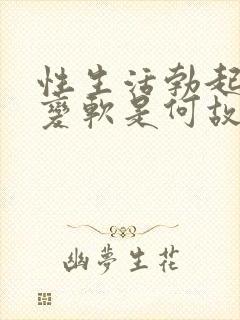 性生活勃起
變軟是何故
幽夢生花